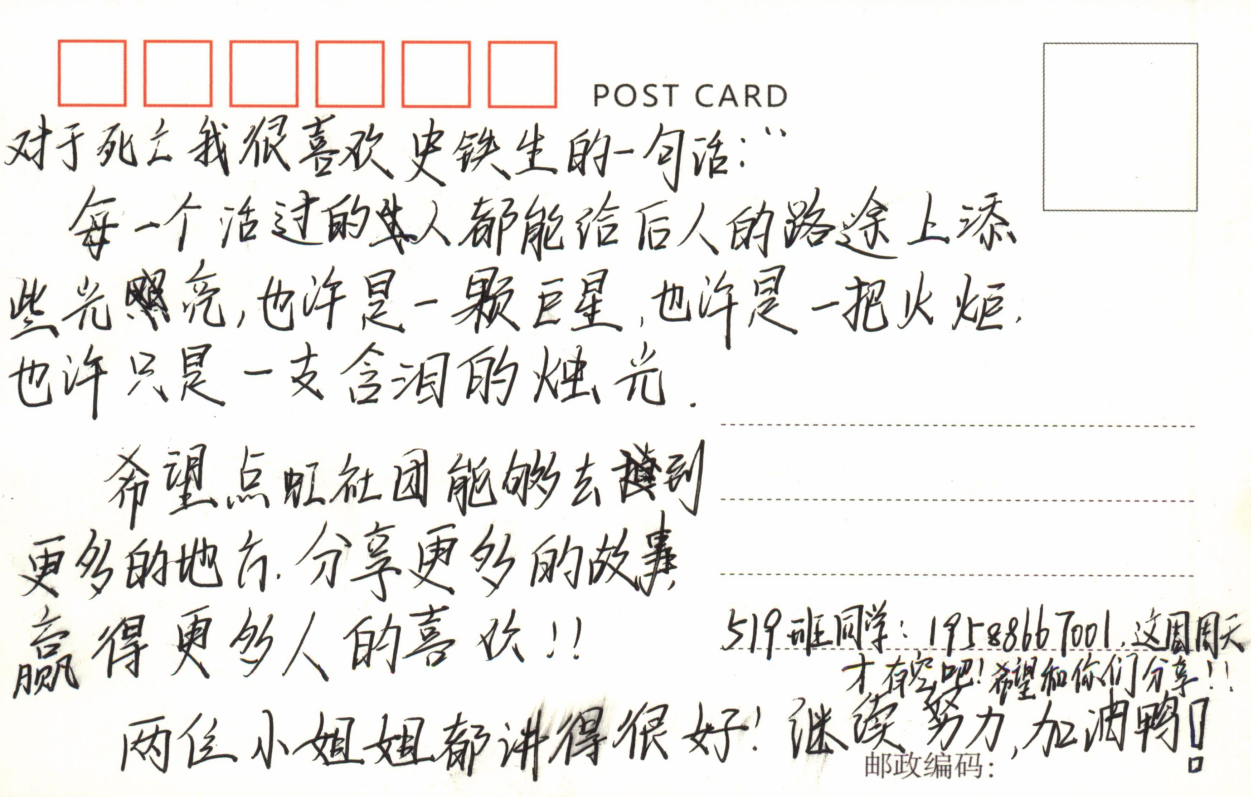 POST CARD
对于死亡我很喜欢史铁生的一句话："
每一个活过的人都能给后人的路途上添
些光亮,也许是一颗巨星,也许是一把火炬,
也许只是一支含泪的烛光.
希望点虹社团能够去到
更多的地方.分享更多的故事
赢得更多人的喜欢!!
519班同学：19588667001.这周周天
才有空吧!希望和你们分享!!
两位小姐姐都讲得很好!继续努力,加油鸭!
邮政编码: